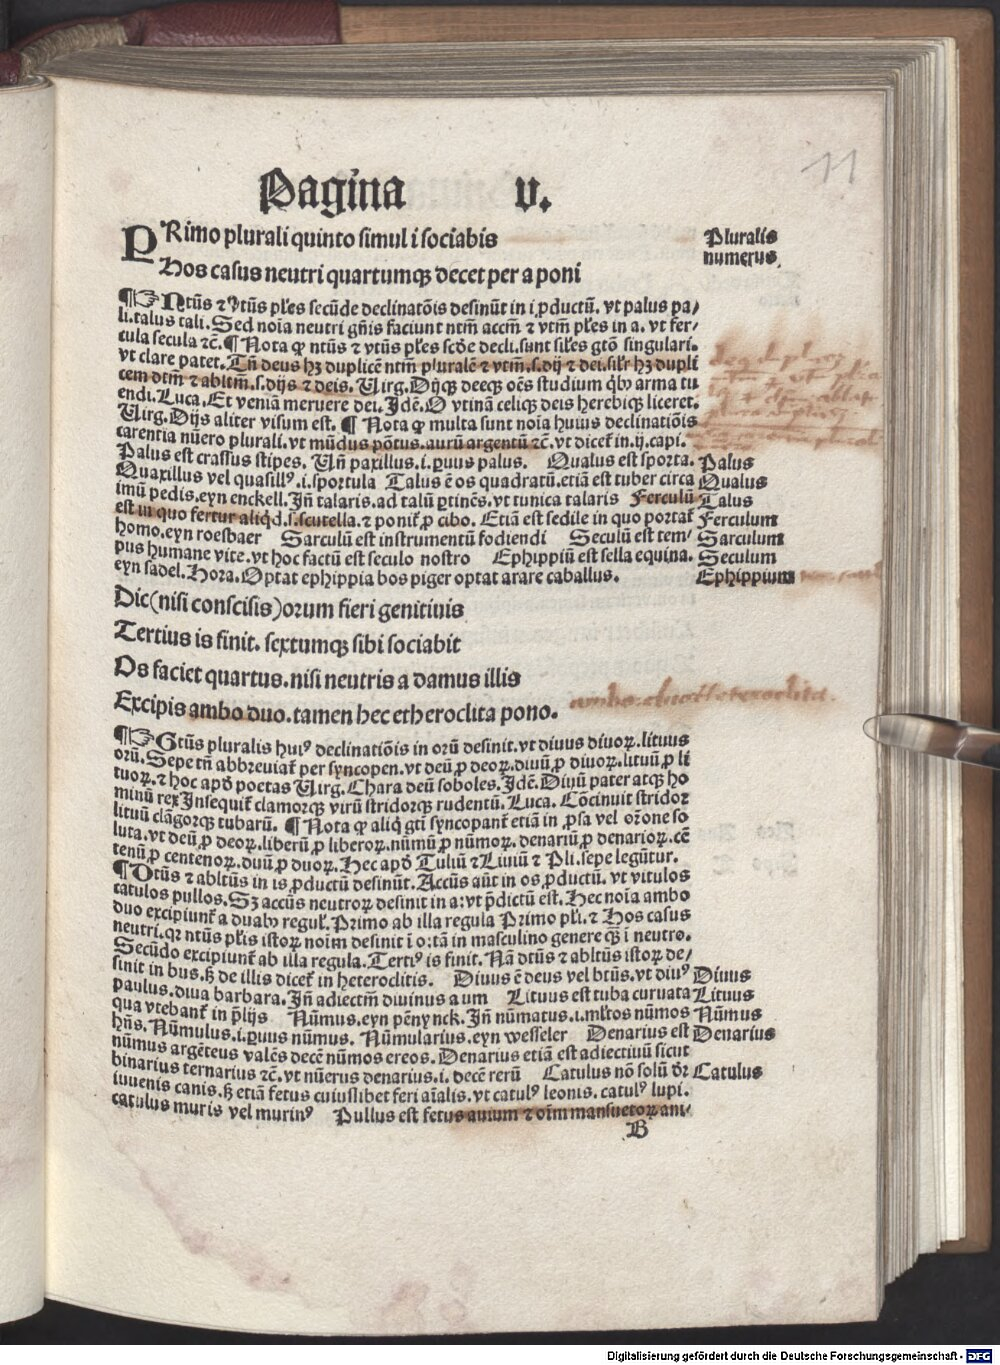 11
Pagina v.
PRimo plurali quinto simul i sociabis
Pluralis
numerus.
Hos casus neutri quartumqꝫ decet per a poni
¶☞Ntūs ⁊ vtūs pl̄es secūde declinatōis desinūt in i ꝓductū. vt palus pa/
li.talus tali. Sed noīa neutri gn̄is faciunt ntm̄ accm̄ ⁊ vtm̄ pl̄es in a. vt fer/
cula secula ⁊c̄. ¶ Nota ꝙ ntūs ⁊ vtūs pl̄es scd̄e decli.sunt sil̄es gtō singulari.
vt clare patet. Tn̄ deus hꝫ duplicē ntm̄ pluralē ⁊ vtm̄.s.dij ⁊ dei.sil̄r hꝫ dupli
cem dtm̄ ⁊ abltm̄.s.dijs ⁊ deis. Virg. Dijqꝫ deeqꝫ oēs studium qb̄ arma tu
endi. Luca. Et veniā meruere dei. Idē. O vtinā celiqꝫ deis herebiqꝫ liceret.
Virg. Dijs aliter visum est. ¶ Nota ꝙ multa sunt noīa huius declinatiōis
carentia nūero plurali. vt mūdus pōtus.aurū argentū ⁊c̄. vt dicet̄ in.ij.capi.
Palus est crassus stipes. Vn̄ paxillus.i.ꝑuus palus. Qualus est sporta. Palus
Quaxillus vel quasillꝰ.i.sportula Talus ē os quadratū.etiā est tuber circa Qualus
imū pedis.eyn enckell. Jn̄ talaris.ad talū ꝑtinēs.vt tunica talaris Ferculū Talus
est in quo fertur aliqd̄.s.scutella.⁊ ponit̄ ꝓ cibo. Etiā est sedile in quo portat̄ Ferculum
homo.eyn roesbaer Sarculū est instrumentū fodiendi Seculū est tem/ Sarculum
pus humane vite.vt hoc factū est seculo nostro Ephippiū est sella equina. Seculum
eyn sadel. Hora. Optat ephippia bos piger optat arare caballus. Ephippium
Dic(nisi conscisis)orum fieri genitiuis
Tertius is finit. sextumqꝫ sibi sociabit
Os faciet quartus.nisi neutris a damus illis
Excipis ambo duo.tamen hec etheroclita pono. ambo duo etheroclita.
¶☞Gtūs pluralis huiꝰ declinatiōis in orū desinit.vt diuus diuoꝝ.lituus
orū. Sepe tn̄ abbreuiat̄ per syncopen. vt deū ꝓ deoꝝ.diuū ꝓ diuoꝝ.lituū ꝓ li
tuoꝝ.⁊ hoc apd̄ poetas Virg. Chara deū soboles. Idē. Diuū pater atqꝫ ho
minū rex Insequit̄ clamorqꝫ virū stridorqꝫ rudentū. Luca. Cōcinuit stridor
lituū clāgorqꝫ tubarū. ¶ Nota ꝙ aliq̄ gtī syncopant̄ etiā in ꝓsa vel or̄one so
luta.vt deū ꝓ deoꝝ.liberū ꝓ liberoꝝ.nūmū ꝓ nūmoꝝ.denariū ꝓ denarioꝝ.cē
tenū ꝓ centenoꝝ.duū ꝓ duoꝝ. Hec apd̄ Tuliū ⁊ Liuiū ⁊ Pli.sepe legūtur.
¶ Dtūs ⁊ abltūs in is ꝓductū desinūt. Accūs aūt in os ꝓductū. vt vitulos
catulos pullos. Sꝫ accūs neutroꝝ desinit in a:vt p̄dictū est. Hec noīa ambo
duo excipiunt̄ a duabꝰ regul̄. Primo ab illa regula Primo pl̄i.⁊ Hos casus
neutri.qꝛ ntūs pl̄is istoꝝ noīm desinit ī o:tā in masculino genere qꝫ̄ ī neutro.
Secūdo excipiunt̄ ab illa regula. Tertiꝰ is finit. Nā dtūs ⁊ abltūs istoꝝ de/
sinit in bus.sꝫ de illis dicet̄ in heteroclitis. Diuus ē deus vel btūs.vt diuꝰ Diuus
paulus.diua barbara. Jn̄ adiectm̄ diuinus a um Lituus est tuba curuata Lituus
qua vtebant̄ in p̄lijs Nūmus.eyn pēnynck. Jn̄ nūmatus.i.ml̄tos nūmos Nūmus
hn̄s. Nūmulus.i.ꝑuus nūmus. Nūmularius.eyn wesseler Denarius est Denarius
nūmus argēteus valēs decē nūmos ereos. Denarius etiā est adiectiuū sicut
binarius ternarius ⁊c̄. vt nūerus denarius.i. decē rerū Catulus nō solū dr̄ Catulus
iuuenis canis.sꝫ etiā fetus cuiuslibet feri aīalis. vt catulꝰ leonis. catulꝰ lupi.
catulus muris vel murinꝰ Pullus est fetus auium ⁊ oīm mansuetoꝝ ani/
B
Digitalisierung gefördert durch die Deutsche Forschungsgemeinschaft - DFG